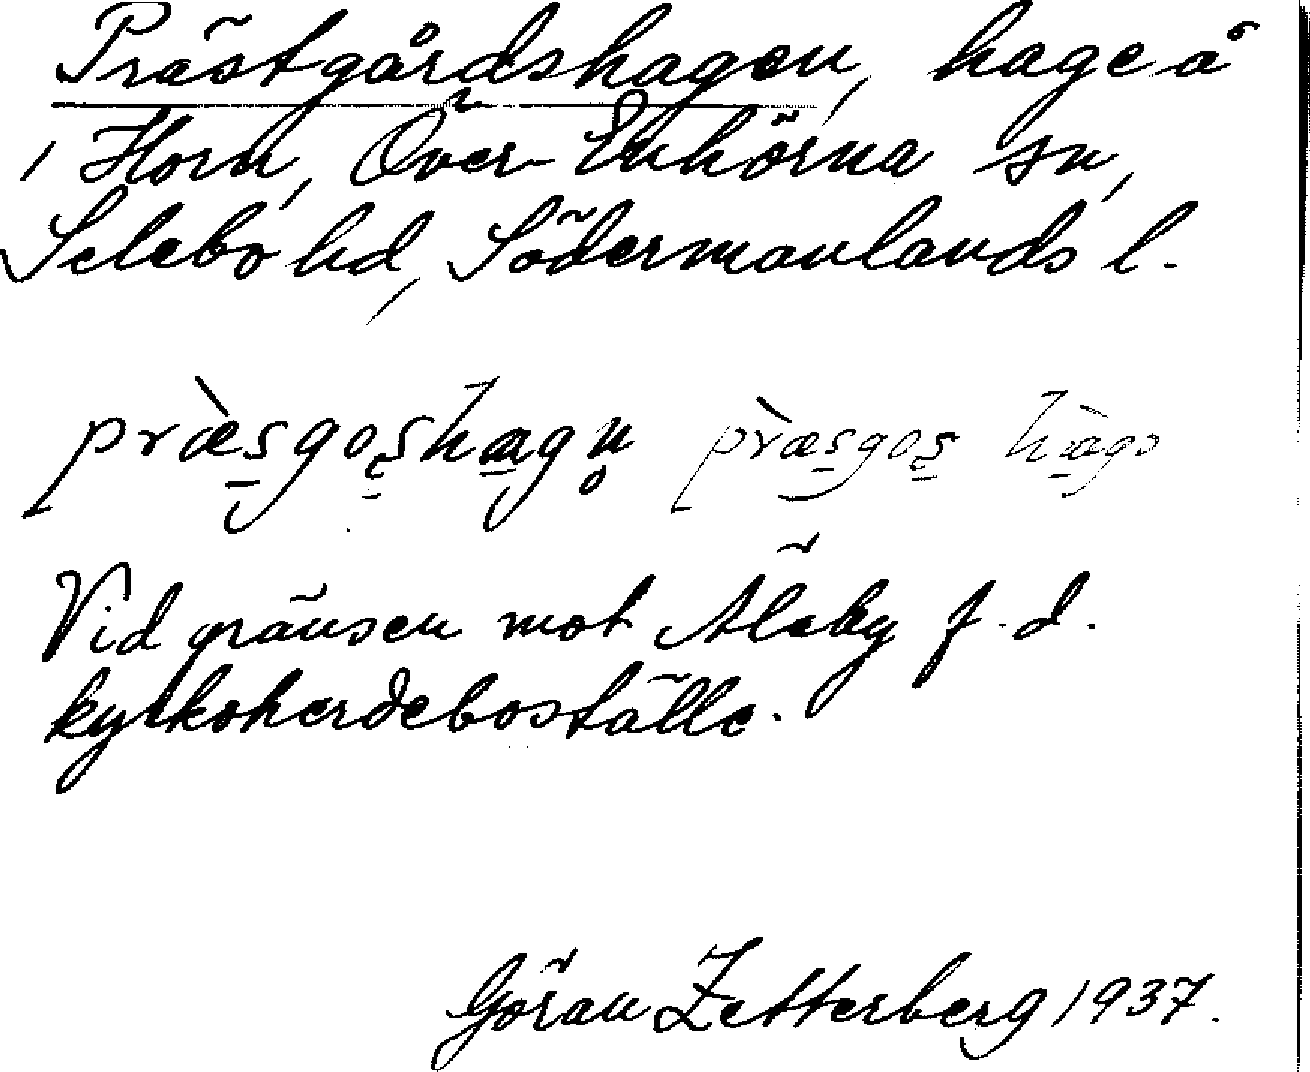 Prästgårdshagen, hage å
Horn, Över-Enhörna sn,
Selebo hd, Södermanlands l.
præ̀sgoshagn præ̀sgos hàgɔ
Vid gränsen mot Äleby f.d.
kyrkoherdeboställe.
Göran Zetterberg 1937.